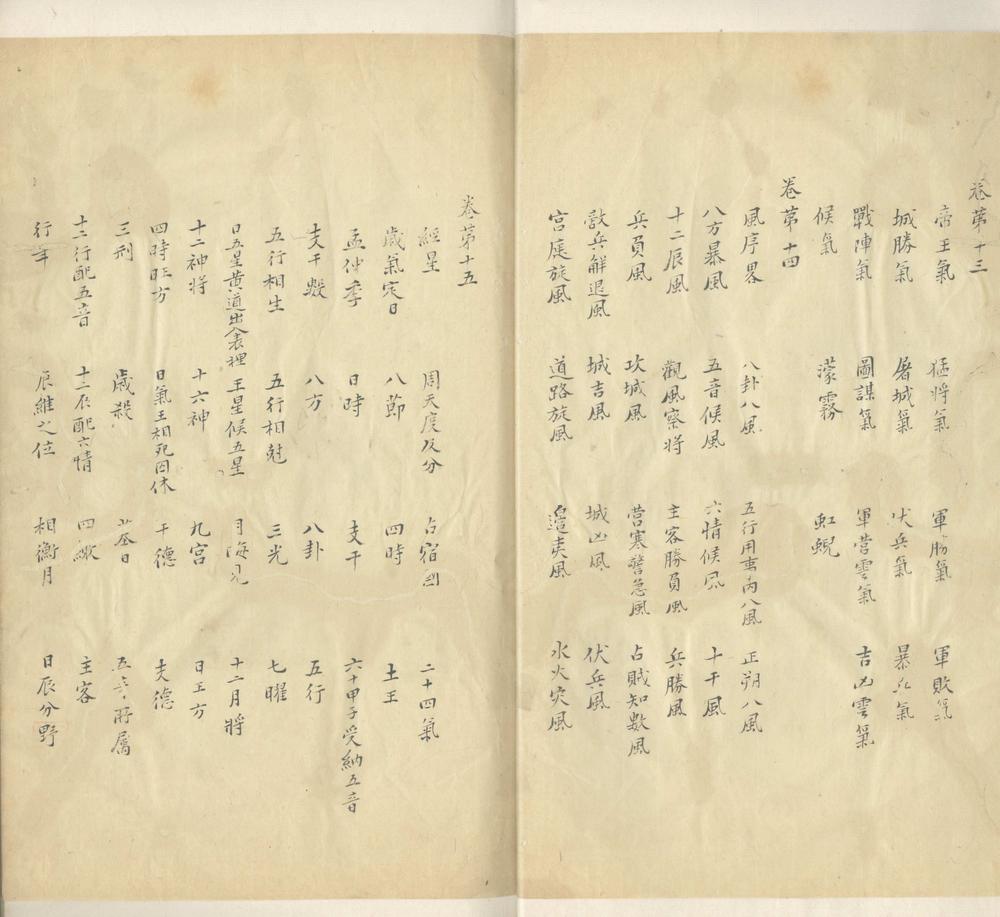 卷第十三
帝王氣 猛將氣 軍勝氣 軍敗氣
城勝氣 屠城氣 伏兵氣 暴兵氣
戰陣氣 圖謀氣 軍營雲氣 吉凶雲氣
候氣 濛霧 虹蜺
卷第十四
風序畧 八卦八風 五行用事丙八風 正朔八風
八方暴風 五音候風 六情候風 十干風
十二辰風 觀風察將 主客勝負風 兵勝風
兵負風 攻城風 營寒警急風 占賊知數風
敵兵解退風 城吉風 城凶風 伏兵風
宮庭旋風 道路旋風 風 水火災風
卷第十五
經星 周天度及分 占宿 二十四氣
歲氣定日 八節 四時 土王
孟仲季 日時 支干 六十甲子受納五音
支干數 八方 八卦 五行
五行相生 五行相尅 三光 七曜
日五星黄道出入表裡 王星候五星 月 十二月將
十二神將 十六神 九宮 日王方
四時旺方 日氣王相死囚休 干德 支德
三刑 歲殺 日 五 所屬
十二行配五音 十二辰配六情 四 主客
行年 辰維之位 相衝月 日辰分野